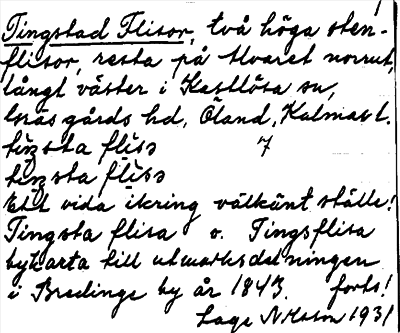 Tingstad Flisor, två höga sten-
flisor, resta på Alvaret norrut,
långt väster i Kastlösa sn,
Gräsgårds hd, Öland, Kalmar l.
tiŋsta flisɔ 7
tiŋsta flisɔ
Ett vida ikring välkänt ställe!
Tingsta flisa o. Tingsflisa
bykarta till utmarksdelningen
i Bredinge by år 1843. forts!
Lage Nilsson 1931